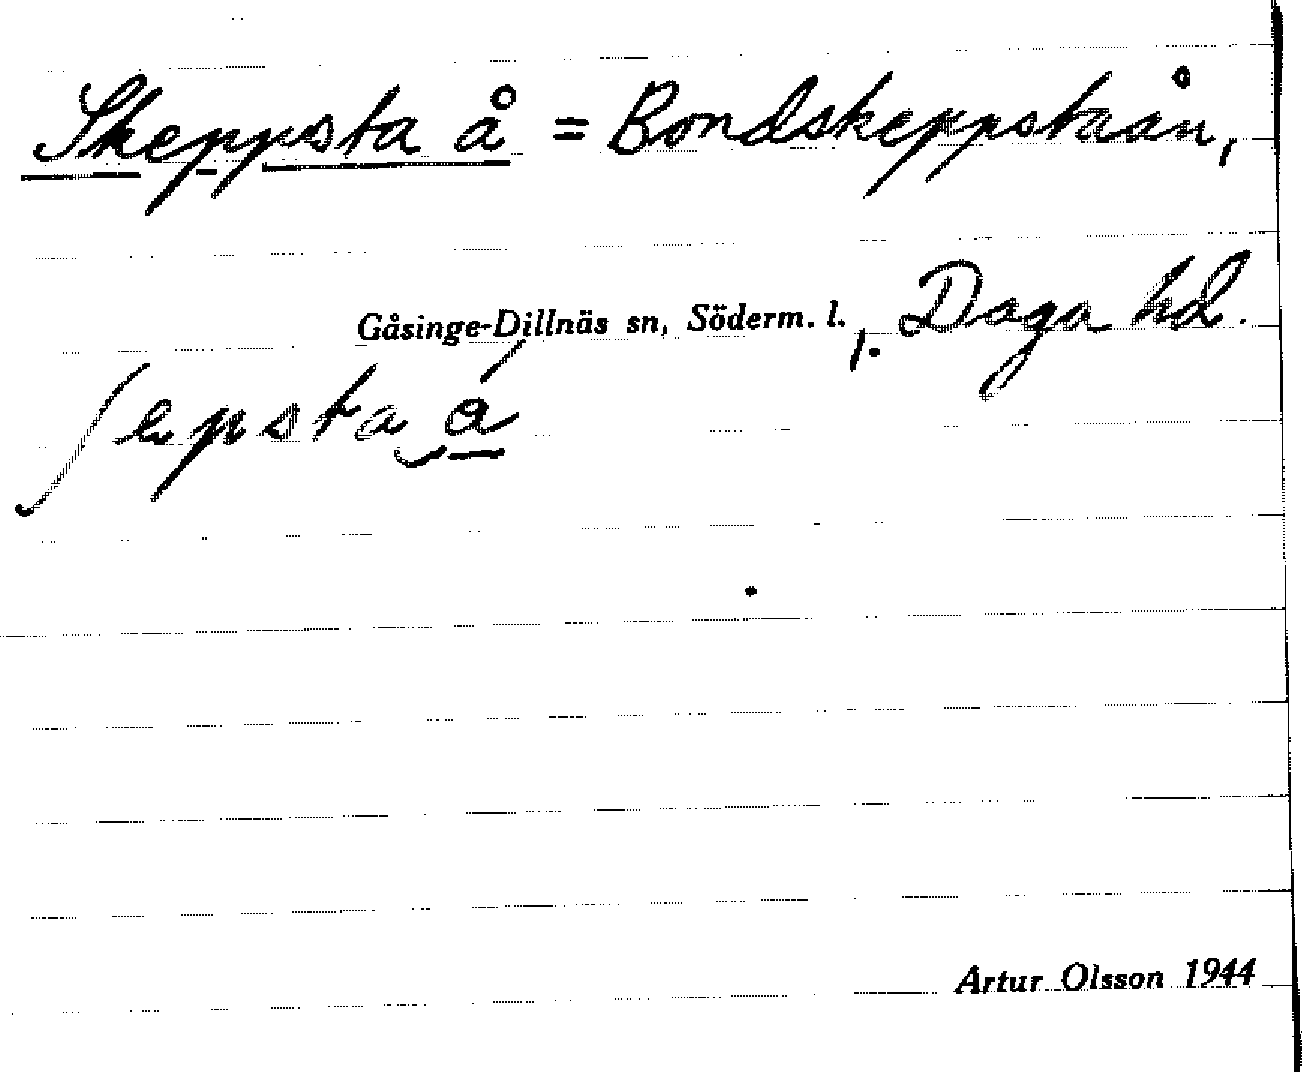 Skeppsta å = Bondskeppstaån,
Gåsinge-Dillnäs sn, Söderm. l., Daga hd.
ʃepsta‿á̱
Artur Olsson 1944